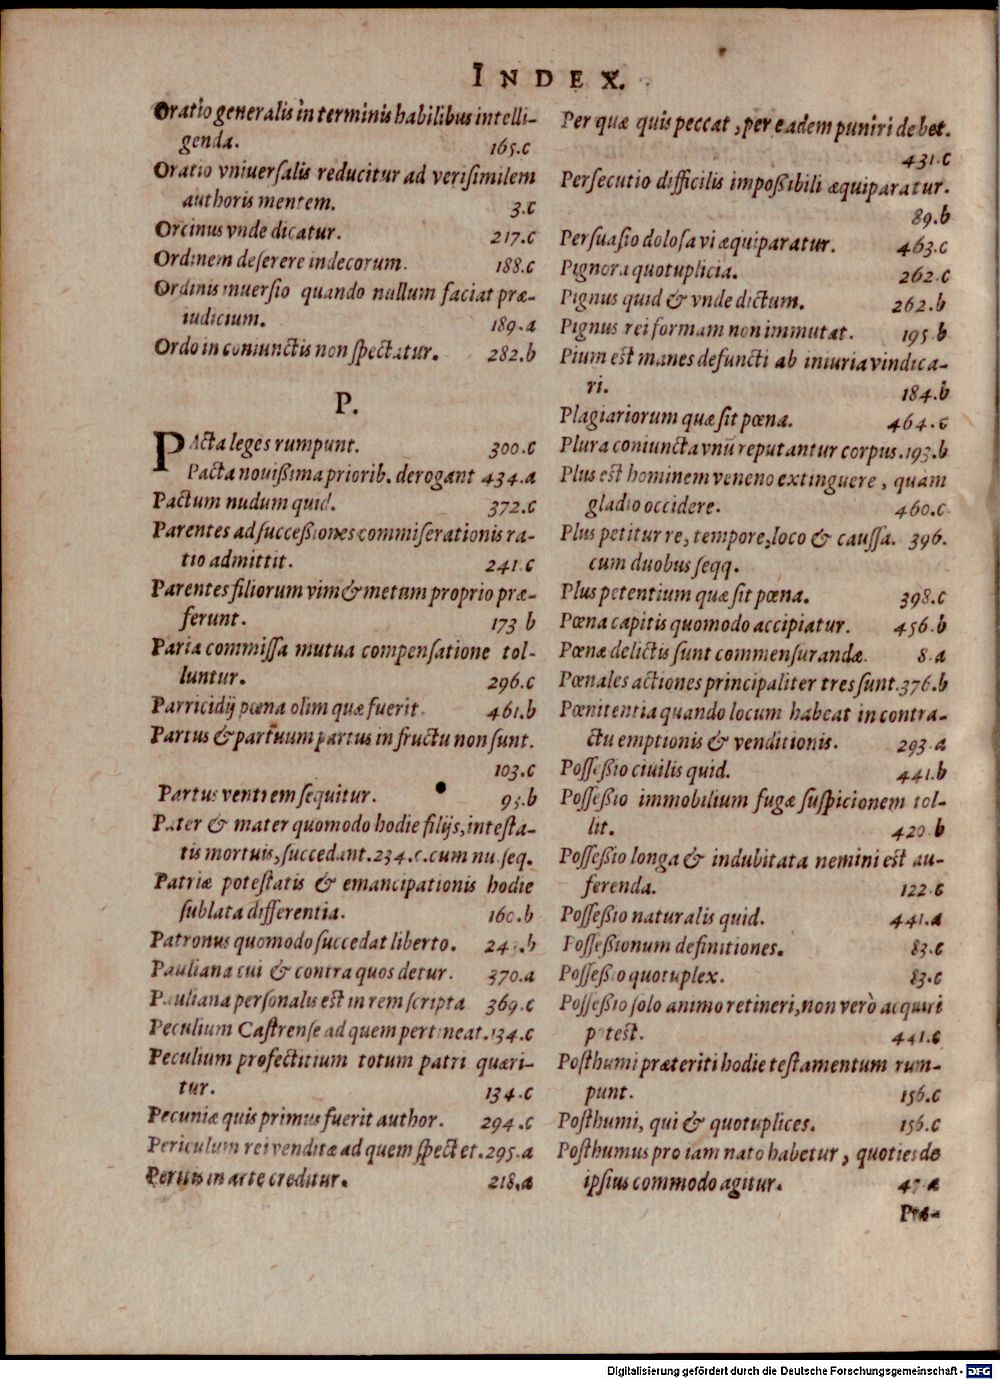 INDEX.
Oratio generalis in terminis habilibus intelli-
genda. 165.c
Oratio vniuersalis reducitur ad verisimilem
authoris mentem. 3.c
Orcinus vnde dicatur. 217.c
Ordinem deserere indecorum. 188.c
Ordinis inuersio quando nullum faciat præ-
iudicium. 189.a
Ordo in coniunctis non spectatur. 282.b
P.
PActa leges rumpunt. 300.c
Pacta nouißima priorib. derogant 434.a
Pactum nudum quid. 372.c
Parentes ad succeßiones commiserationis ra-
tio admittit. 241.c
Parentes filiorum vim & metum proprio præ-
ferunt. 173 b
Paria commissa mutua compensatione tol-
luntur. 296.c
Parricidij pœna olim quæ fuerit. 461.b
Partus & partuum partus in fructu non sunt.
103.c
Partus ventrem sequitur. 93.b
Pater & mater quomodo hodie filijs, intesta-
tis mortuis, succedant. 234.c. cum nu. seq.
Patriæ potestatis & emancipationis hodie
sublata differentia. 160.b
Patronus quomodo succedat liberto. b
Pauliana cui & contra quos detur. 370.a
Pauliana personalis est in rem scripta 369.c
Peculium Castrense ad quem pertineat. 134.c
Peculium profectitium totum patri quæri-
tur. 134.c
Pecuniæ quis primus fuerit author. 294.c
Periculum rei venditæ ad quem spectet. 295.a
Peritis in arte creditur. 218.a
Per quæ quis peccat, per eadem puniri debet.
431.c
Persecutio difficilis impoßibili æquiparatur.
89.b
Persuasio dolosa vi æquiparatur. 463.c
Pignora quotuplicia. 262.c
Pignus quid & vnde dictum. 262.b
Pignus rei formam non immutat. 195 b
Pium est manes defuncti ab iniuria vindica-
ri. 184.b
Plagiariorum quæ sit pœna. 464.c
Plura coniuncta vnũ reputantur corpus. 193.b
Plus est hominem veneno extinguere, quam
gladio occidere. 460.c
Plus petitur re, tempore, loco & caussa. 396.
cum duobus seqq.
Plus petentium quæ sit pœna. 398.c
Pœna capitis quomodo accipiatur. 456.b
Pœnæ delictis sunt commensurandæ. 8.a
Pœnales actiones principaliter tres sunt. 376.b
Pœnitentia quando locum habeat in contra-
ctu emptionis & venditionis. 293.a
Posseßio ciuilis quid. 441.b
Posseßio immobilium fugæ suspicionem tol-
lit. 420.b
Posseßio longa & indubitata nemini est au-
ferenda. 122.c
Posseßio naturalis quid. 441.a
Posseßionum definitiones. 83.c
Posseßio quotuplex. 83.c
Posseßio solo animo retineri, non verò acquiri
potest. 441.c
Posthumi præteriti hodie testamentum rum-
punt. 156.c
Posthumi, qui & quotuplices. 156.c
Posthumus pro iam nato habetur, quoties de
ipsius commodo agitur. 47.a
Præ-
Digitalisierung gefördert durch die Deutsche Forschungsgemeinschaft - DFG